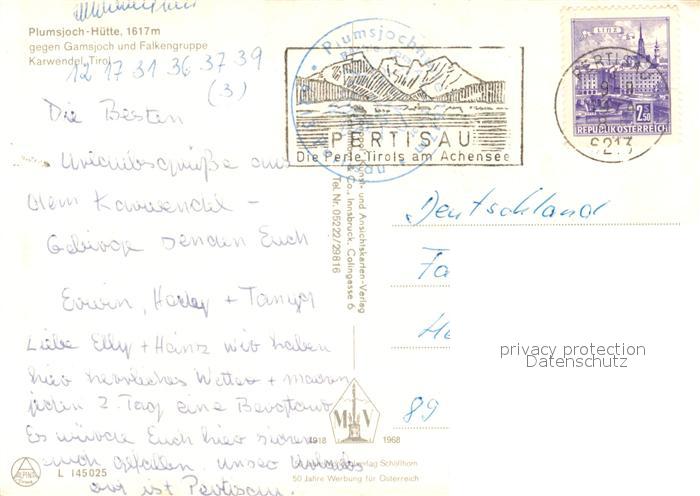 Plumsjoch-Hütte, 1617m
gegen Gamsjoch und Falkengruppe
Karwendel, Tirol
12 17 31 36 37 39
(3)
Die Besten
Urlaubsgrüße aus
dem Karwendel -
Gebirge senden Euch
Erwin, Hedy + Tanja
Liebe Elly + Heinz wir haben
hier herrliches Wetter + machen
jeden 2. Tag eine Bergtour
Es würde Euch hier sicher
auch gefallen. unser Urlaubs
ort ist Pertisau.
ALPINA
L 145025
Plumsjochhütte
PERTISAU
Die Perle Tirols am Achensee
Kunst- und Ansichtskarten-Verlag
& Co., Innsbruck, Colingasse 6
Tel. Nr. 05222/29816
M V
1918 1968
Verlag Schöllhorn
50 Jahre Werbung für Österreich
LINZ
2.50
REPUBLIK ÖSTERREICH
PERTISAU
6213
Deutschland
Fa
He
89
privacy protection
Datenschutz